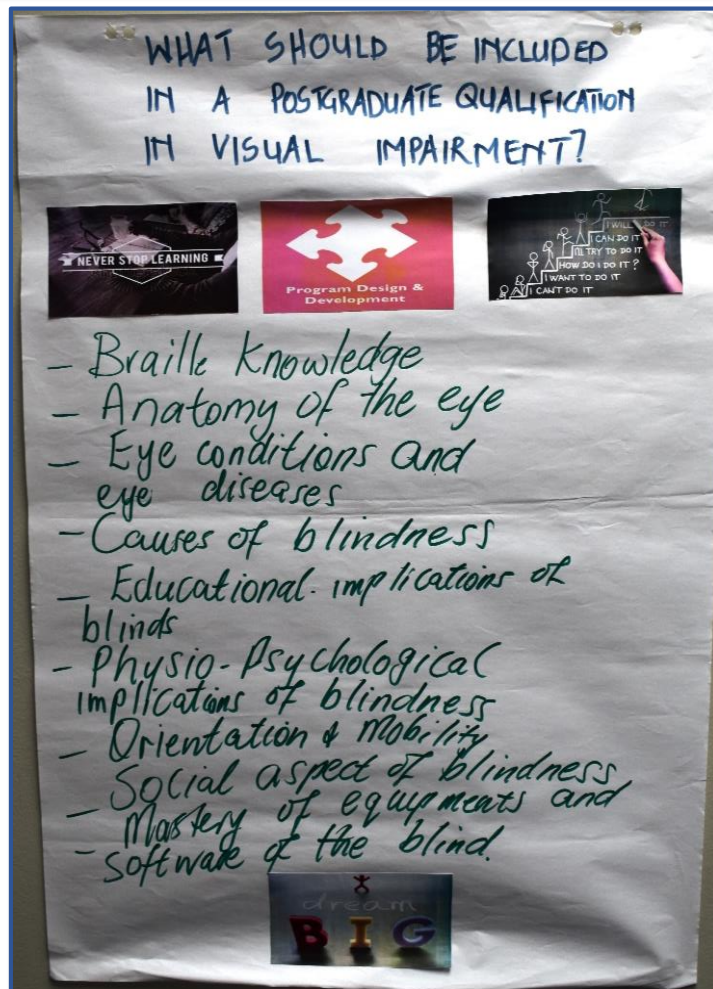 WHAT SHOULD BE INCLUDED
IN A POSTGRADUATE QUALIFICATION
IN VISUAL IMPAIRMENT?
NEVER STOP LEARNING
Program Design &
Development
I WILL DO IT
I CAN DO IT
I'LL TRY TO DO IT
HOW DO I DO IT?
I WANT TO DO IT
I CAN'T DO IT
- Braille Knowledge
- Anatomy of the eye
- Eye conditions and
eye diseases
- Causes of blindness
- Educational implications of
blinds
- Physio-Psychological
implications of blindness
- Orientation & Mobility
Social aspect of blindness
- Mastery of equipments and
- Software of the blind.
dream
BIG